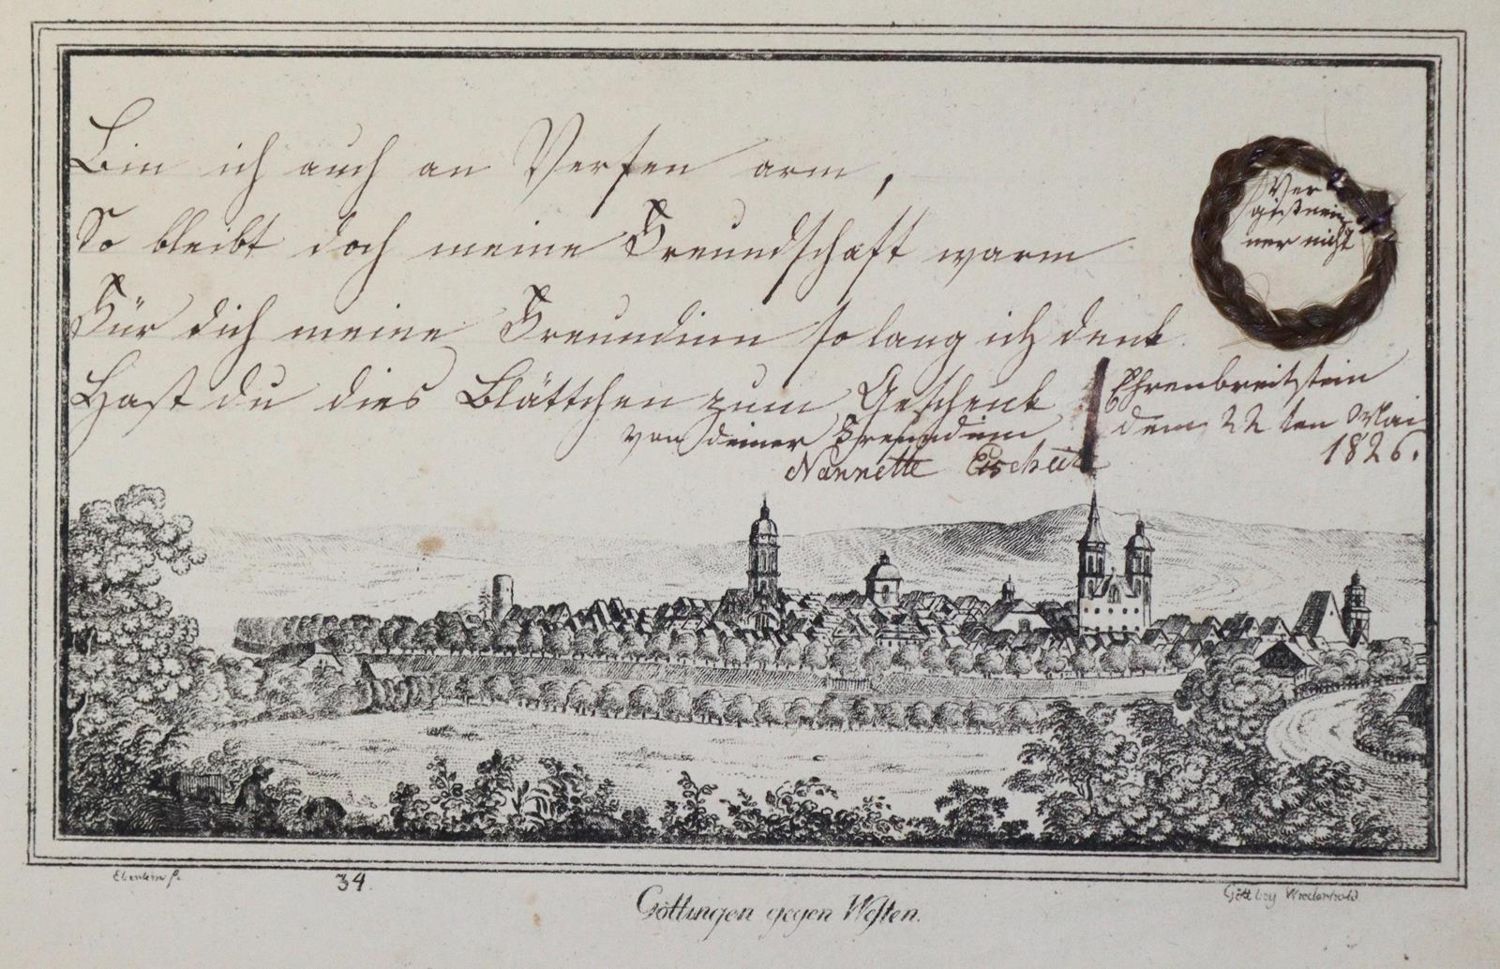 Bin ich auch an Versen arm,
So bleibt doch meine Freundschaft warm
Für dich meine Freundinn so lang ich denk
Hast du dies Blättchen zum Geschenk
von deiner Freundinn
Nannette
Ver
gißmei
ner nicht
Ehrenbreitstein
dem 22ten Mai
1826.
34.
Göttingen gegen Westen.
Gött. bey Wiederhold